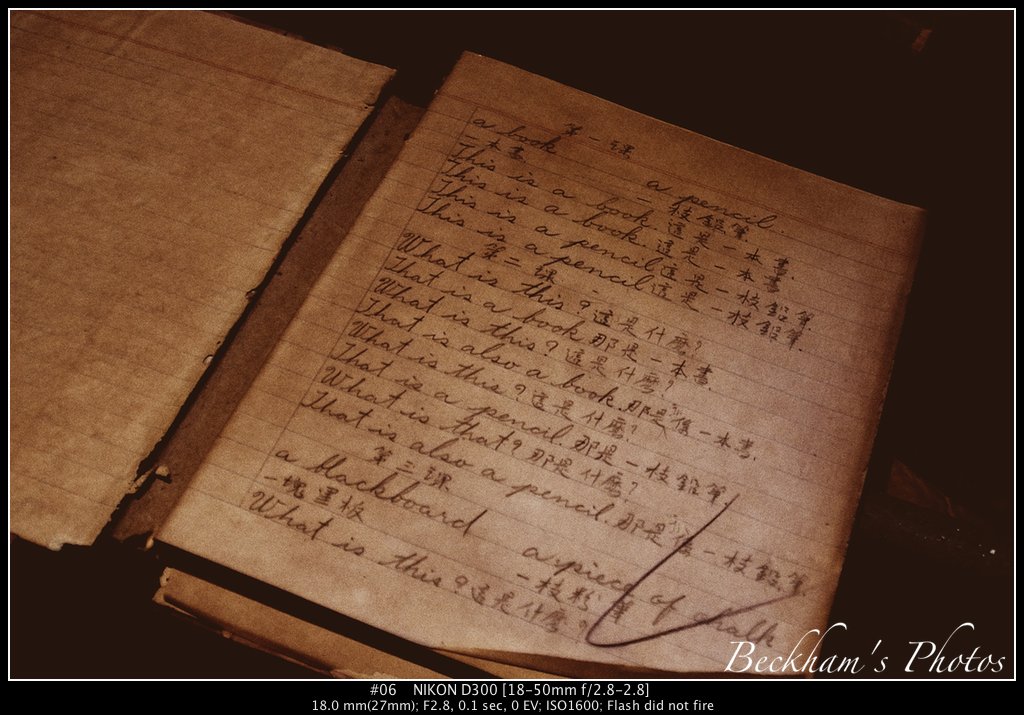 第一課
a book a pencil.
一本書 一枝鉛筆
This is a book. 這是一本書.
This is a book. 這是一本書.
This is a pencil 這是一枝鉛筆.
This is a pencil 這是一枝鉛筆.
第二課
What is this? 這是什麼?
That is a book. 那是一本書
What is this? 這是什麼?
That is also a book. 那是一本書.
What is this? 這是什麼?
That is a pencil. 那是一枝鉛筆
What is that? 那是什麼?
That is also a pencil. 那是一枝鉛筆.
第三課
a blackboard a piece of chalk
一塊黑板 一枝粉筆
What is this? 這是什麼?
Beckham's Photos
#06 NIKON D300 [18-50mm f/2.8-2.8]
18.0 mm(27mm); F2.8, 0.1 sec, 0 EV; ISO1600; Flash did not fire